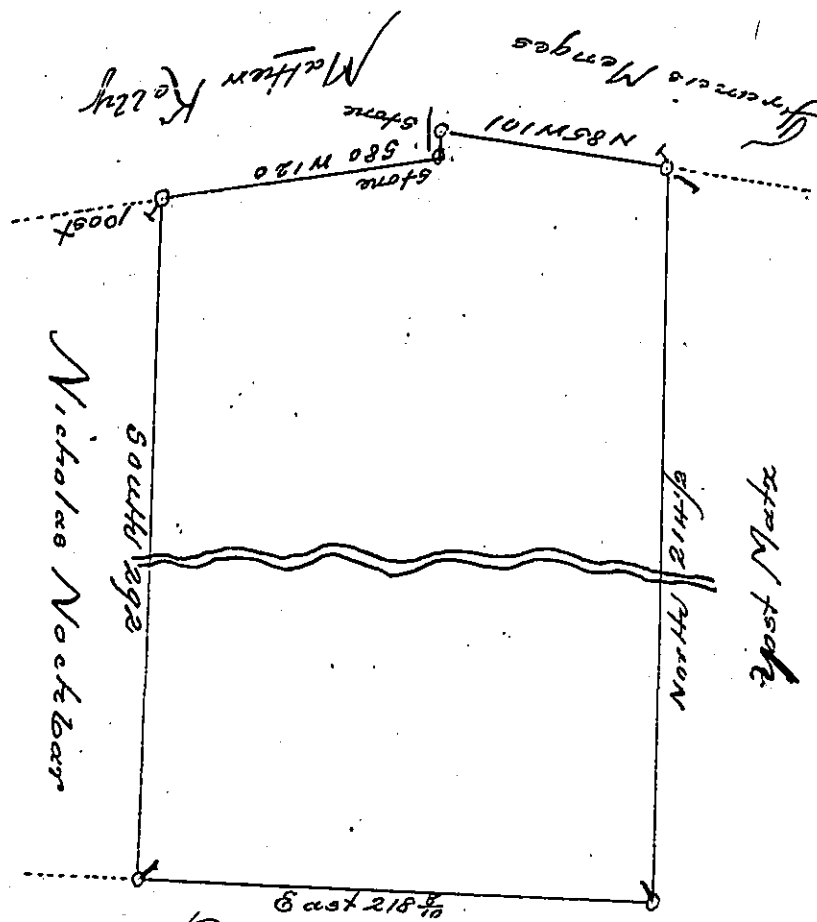 Francis Menges
Mathew Kelly
N85W101
Stone
S80 W120
Stone
Post
Nicholas Nochbar
South 292
North 214 2/8
East 218 8/10